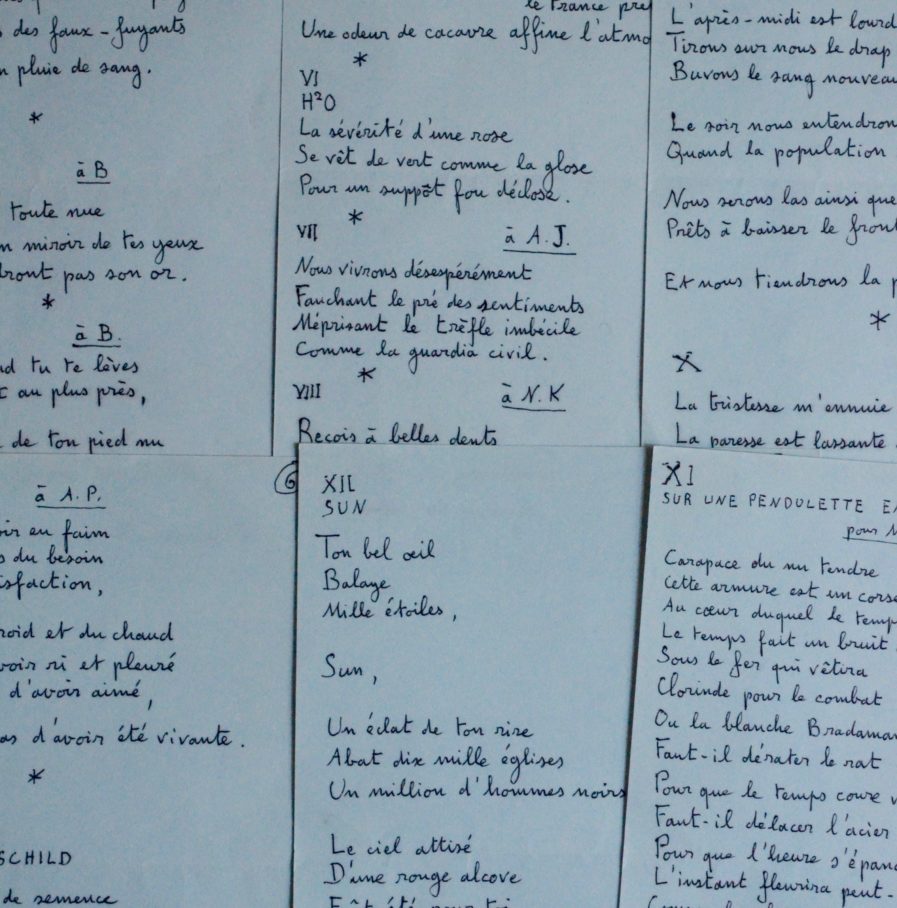 des faux-fuyants
pluie de sang.
*
à B
toute nue
miroir de tes yeux
pas son or.
*
à B.
tu te lèves
au plus près,
de ton pied nu
le France
Une odeur de cacavre affine l'atmo
*
VI
H²O
La sévérité d'une rose
Se vêt de vert comme la glose
Pour un suppôt fou déclose.
*
VII
à A.J.
Nous vivrons désespérément
Fauchant le pré des sentiments
Méprisant le trèfle imbécile
Comme la guardia civil.
*
VIII
à N.K
Reçois à belles dents
L'après-midi est lourd
Tirons sur nous le drap
Buvons le sang nouveau
Le soir nous entendron
Quand la population
Nous serons las ainsi que
Prêts à baisser le front
Et nous tiendrons la p
*
X
La tristesse m'ennuie
La paresse est lassante
à A.P.
faim
du besoin
sfaction,
roid et du chaud
voir ri et pleuré
d'avoir aimé,
as d'avoir été vivante.
*
SCHILD
de semence
6
XII
SUN
Ton bel œil
Balaye
Mille étoiles,
Sun,
Un éclat de ton rire
Abat dix mille églises
Un million d'hommes noirs
Le ciel attisé
D'une rouge alcove
XI
SUR UNE PENDULETTE E
pour
Carapace du nu tendre
Cette armure est un corse
Au cœur duquel le temp
Le temps fait un bruit
Sous le fer qui vêtira
Clorinde pour le combat
Ou la blanche Bradama
Faut-il dérater le rat
Pour que le temps coure
Faut-il délacer l'acier
Pour que l'heure s'épan
L'instant fleurira peut-